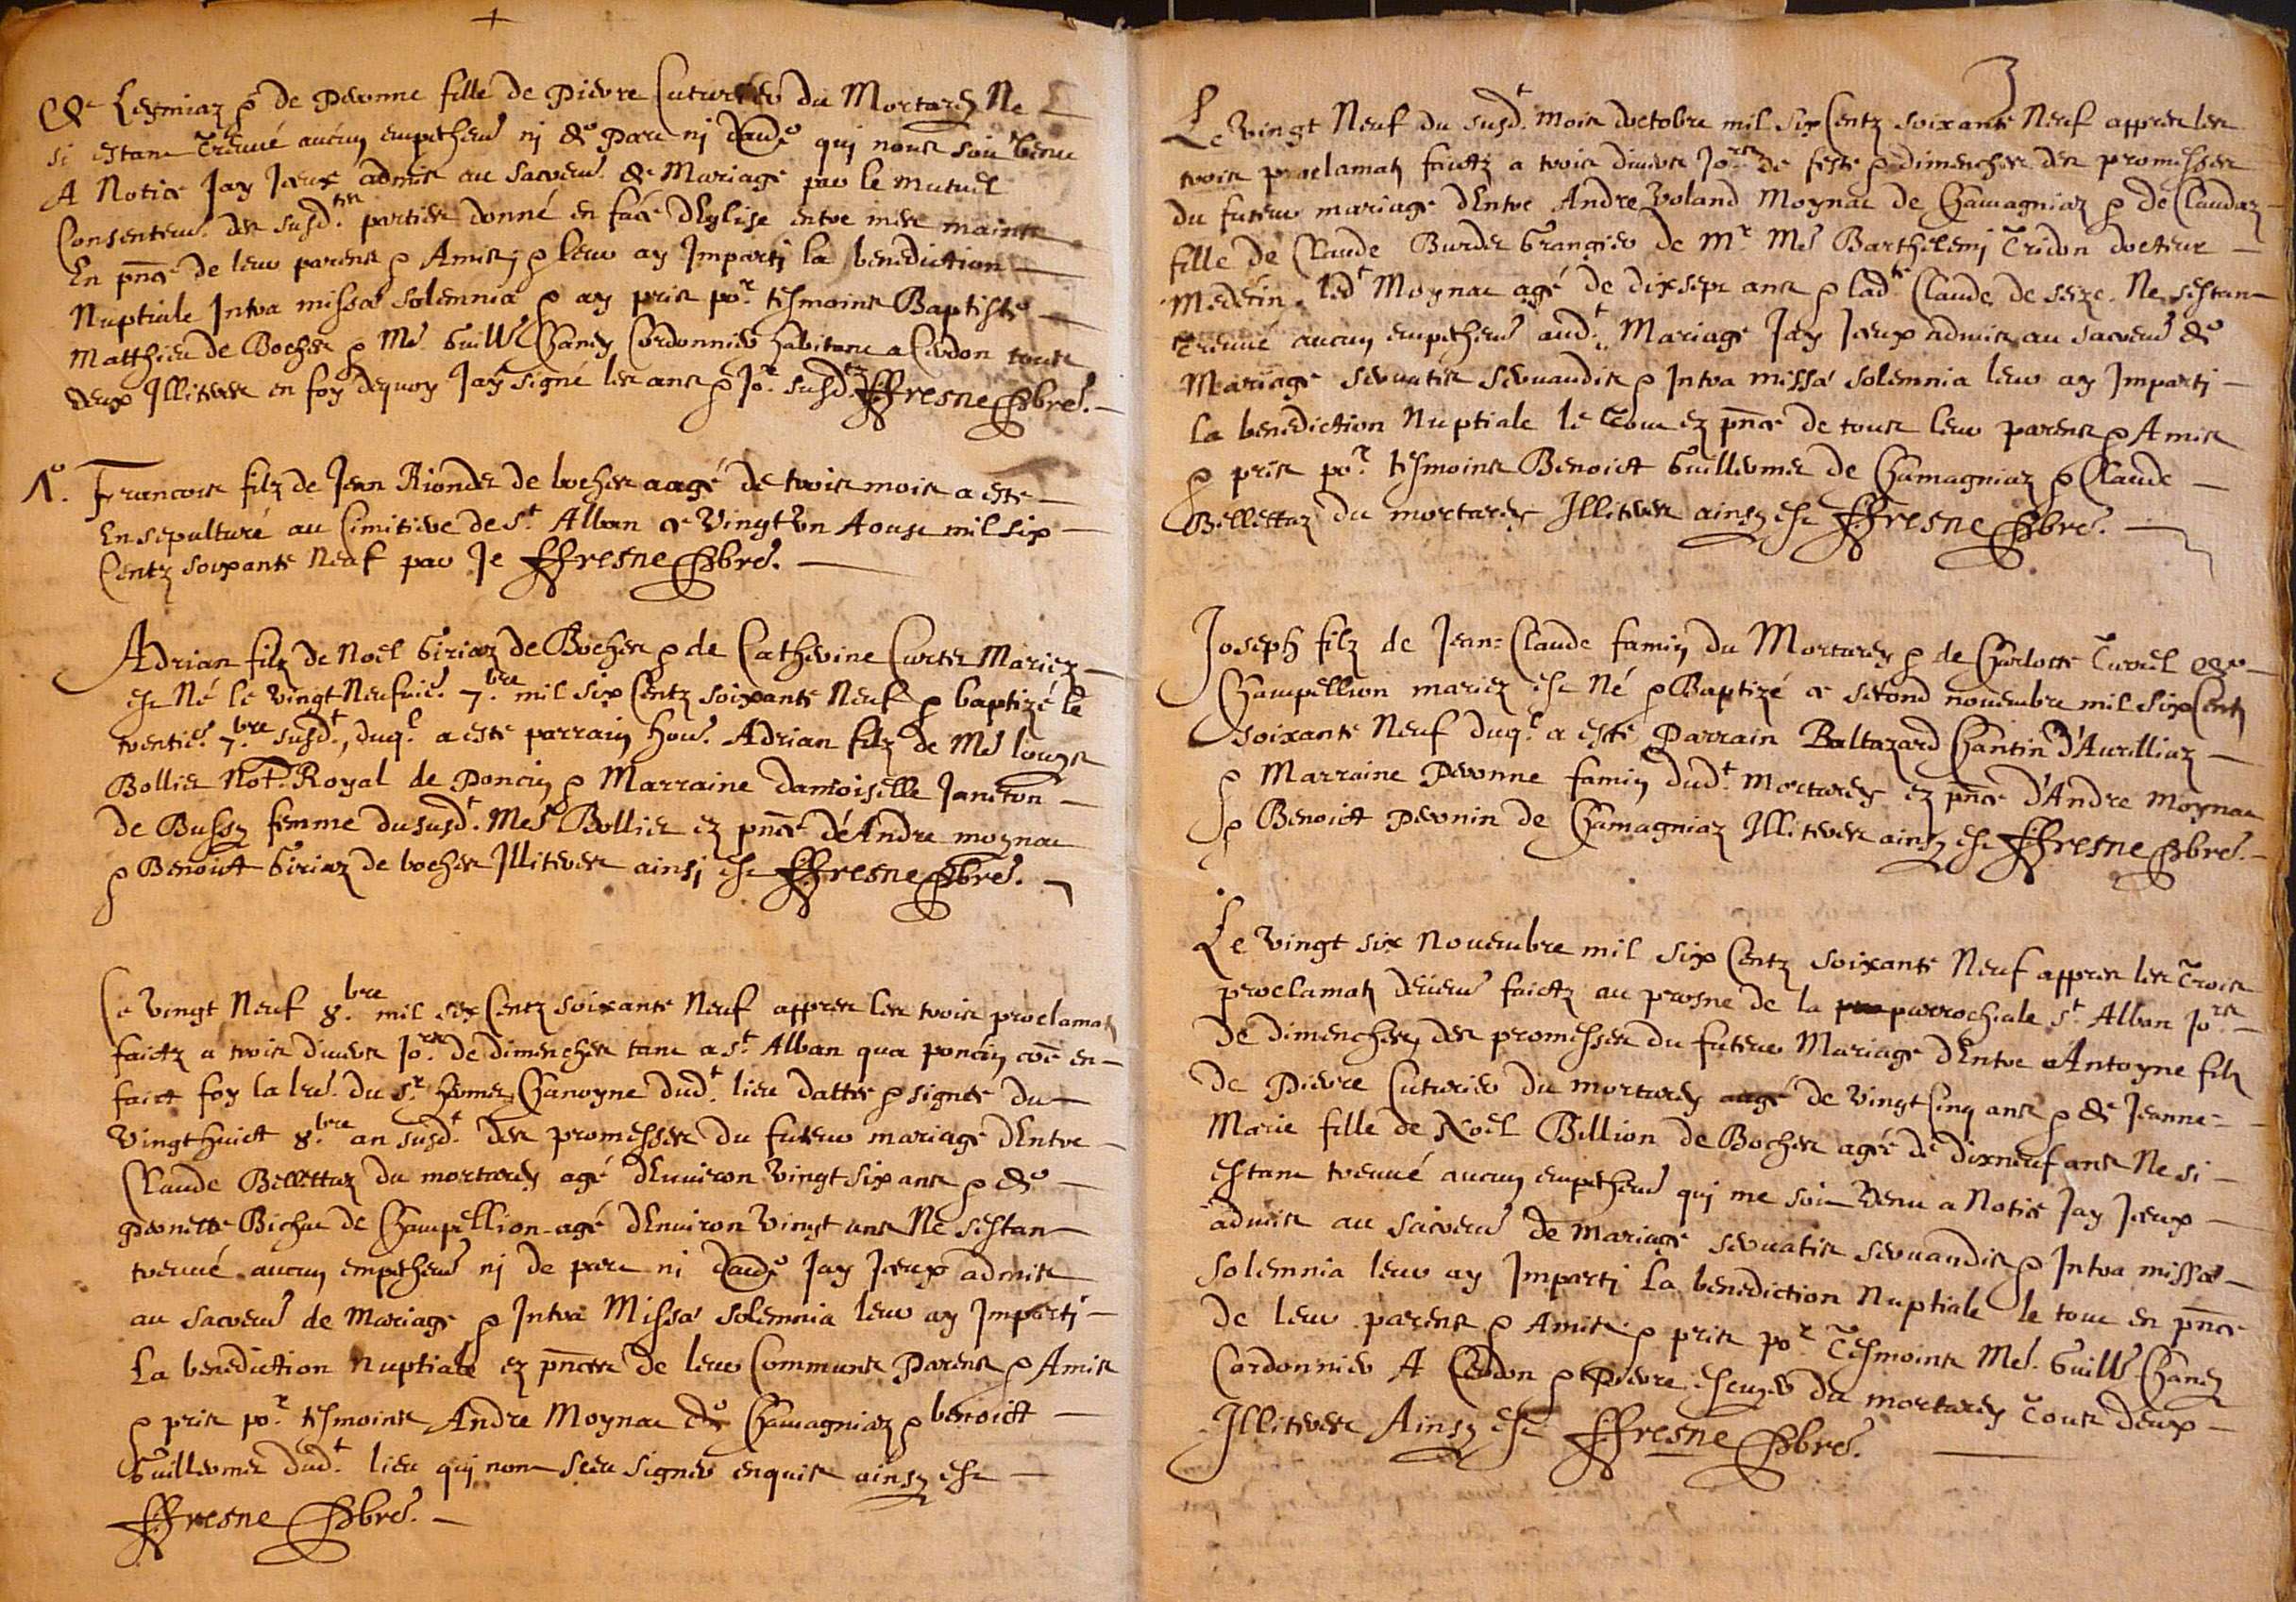 de Leymiaz & de Pernne fille de Pierre Cuturier du Mortarey Ne
si estant treuvé aucun empechemt ni de part ni daude qui nous soit venu
A Notice Jay Iceux admis au sacremt de Mariage par le mutuel
Consentemt des susdtes parties donné en face dEglise entre mes mains
En pnce de leur parens & Amis, & leur ay Imparti la benediction
Nuptiale Intra missa solemnia & ay pris por tesmoins Baptiste
Matthieu de Boches & Me Guille Chaney Cordonnier habitant a Cerdon tous
deux Illiteres en foy dequoy Jay signé les ans & Jor susdtz ffresne pbre.
No. Francois filz de Jean Riondet de boches aagé de trois mois a esté
Ensepulturé au Cimitiere de St Alban ce vingt un Aoust mil six
Centz soixante Neuf par Je ffresne pbre.
Adrian filz de Noel Giriaz de Boches & de Catherine Curtet Mariez
est Né le vingt Neufvie. 7.bre mil six Centz soixante Neuf & baptizé le
trentie. 7.bre susdt, duql a esté parrain hon. Adrian filz de Me louys
Bolliet Not. Royal de Poncin & Marraine damoiselle Janeton
de Bussy femme dususdt. Me Bolliet ez pnce de Andre moynat
& Benoict Giriaz de boches Illiteres ainsi est ffresne pbre.
Ce vingt Neuf 8.bre mil six Centz soixante Neuf appres les trois proclamat
faictz a trois divers Jors de dimenches tant a St Alban qua poncin coe en
faict foy la lre. du Sr Chanoyne dudt. lieu dattée & signée du
vingthuict 8.bre an susdt. des promesses du futeur mariage dEntre
Claude Bellettaz du mortarey agé dEnviron vingt six ans & de
pernette Bichat de Champellion agé dEnviron vingt ans Ne sestant
treuvé aucun empechemt ni de part ni daude Jay Iceux admis
au sacremt de Mariage & Intra Missa solemnia leur ay Imparti
La benediction Nuptiale ez pnces de leur Communs Parens & Amis
& pris por tesmoins Andre Moynat de Chamagniaz & benoict
Guillermet dudt. lieu qui nont sceu signer enquis ainsy est
ffresne pbre.
3
Le vingt Neuf du susdt. mois doctobre mil six Centz soixante Neuf appres les
trois proclamatz faictz a trois divers Jors de feste & dimenches des promesses
du futeur mariage dEntre Andre Voland Moynat de Chamagniaz & de Claudaz
fille de Claude Burdet Grangier de Mr Me Barthelemi Tridon docteur
Medecin, ledt Moynat agé de dixsept ans & ladte Claude de seize. Ne sestant
treuvé aucun empechemt audt. Mariage Jay Iceux admis au sacremt de
Mariage servatis servandis & Intra missa solemnia leur ay Imparti
La benediction Nuptiale le tout ez pnce de tous leur parens & Amis
& pris por tesmoins Benoict Guillermet de Chamagniaz & Claude
Bellettaz du mortarey Illiteres ainsy est ffresne pbre.
Joseph filz de Jean=Claude famin du Mortarey & de Charlotte Turrel
Champellion mariez est Né & Baptizé ce second novembre mil six Centz
soixante Neuf duql a esté Parrain Baltazard Chantin d'Avrilliaz
& Marraine Pernne famin dudt. Mortarey ez pnce d'Andre Moynat
& Benoict Pernin de Chamagniaz Illiteres ainsy est ffresne pbre.
Le vingt six novembre mil six Centz soixante Neuf appres les trois
proclamatz faictz au prosne de la parrochiale St Alban Jors
de dimenches, des promesses du futeur Mariage dEntre Antoyne filz
de Pierre Cuturier du mortarey aagé de vingt Cinq ans & de Jeanne=
Marie fille de Noel Billion de Boches agée de dixneuf ans Ne si
estant treuvé aucun empechemt qui me soit venu a Notice Jay Iceux
admis au sacremt de Mariage servatis servandis & Intra missa
solemnia leur ay Imparti La benediction Nuptiale le tout en pnce
de leur parens & Amis & pris por Tesmoins Me. Guille Chaney
Cordonnier A Cerdon & Pierre du mortarey Tous deux
Illiteres Ainsy est ffresne pbre.